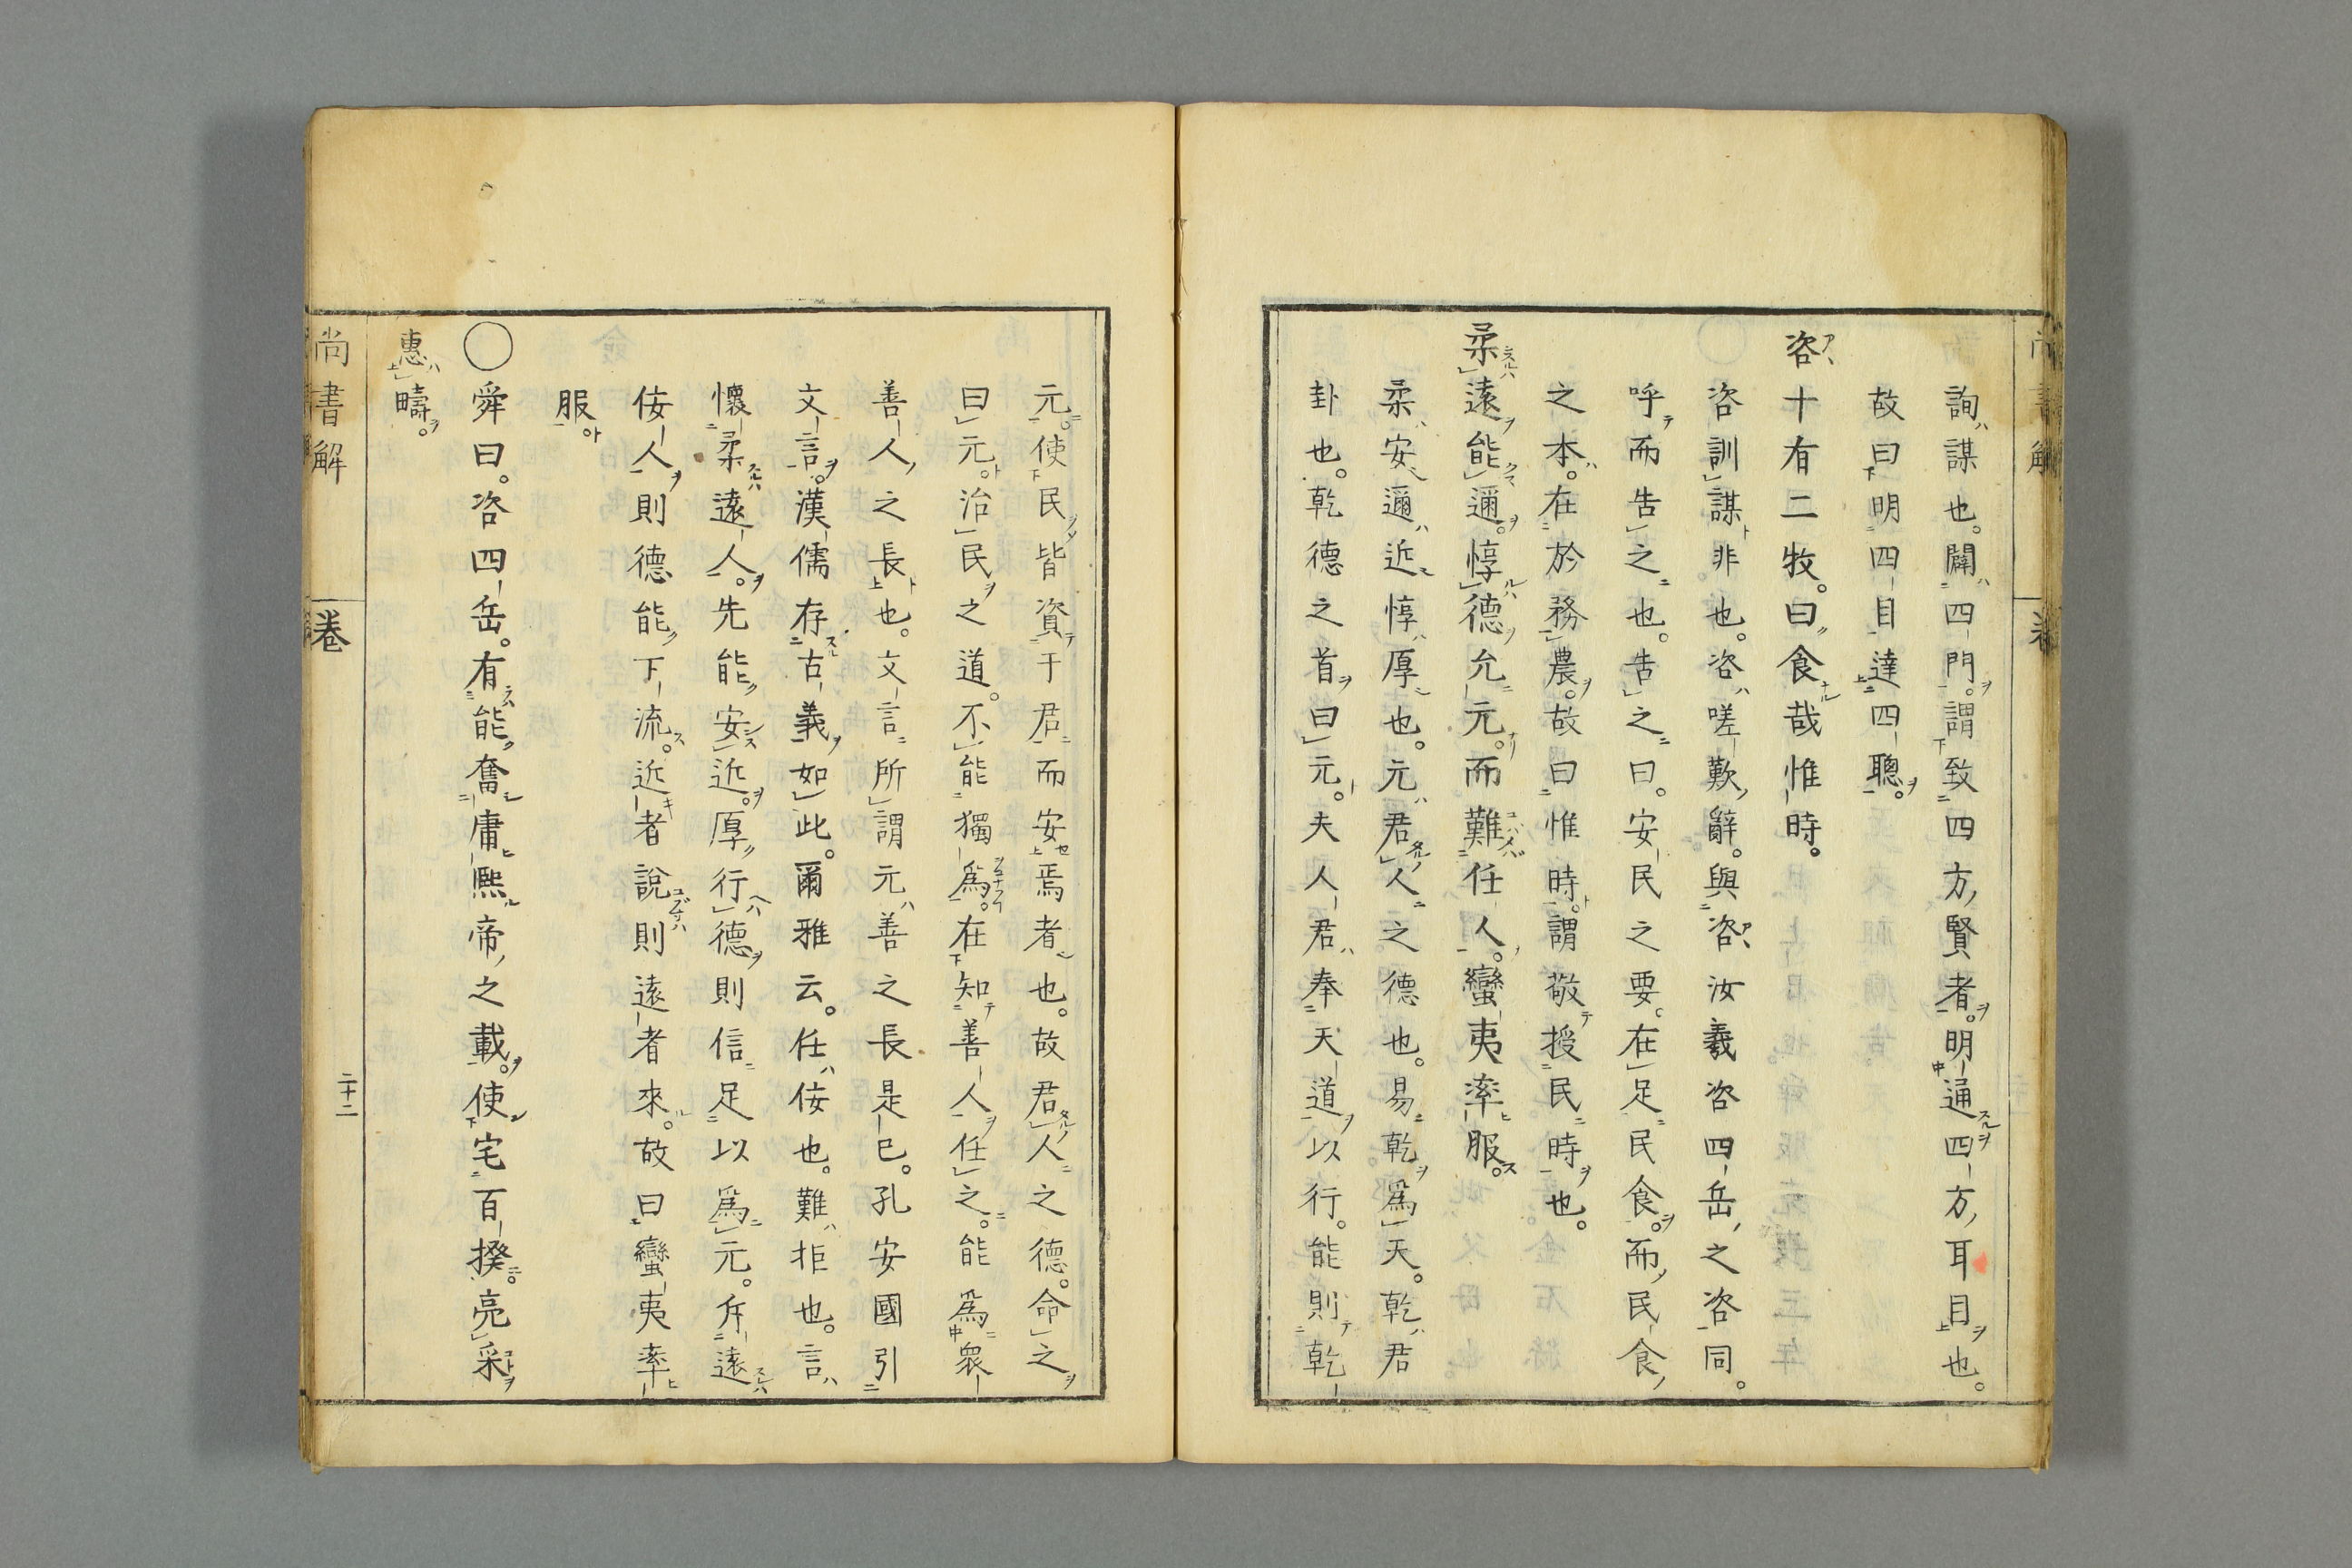 詢謀也。闢四門。謂致四方賢者。明通四方耳目也。
故曰明四目達四聰。
咨十有二牧。曰食哉惟時。
咨訓謀非也。咨嗟歎辭。與咨汝羲咨四岳之咨同。
呼而告之也。告之曰。安民之要。在足民食。而民食
之本。在於務農。故曰惟時。謂敬授民時也。
柔遠能邇。惇德允元。而難任人。蠻夷率服。
柔安邇近惇厚也。元君人之德也。易乾爲天。乾君
卦也。乾德之首曰元。夫人君奉天道以行。能則乾
元。使民皆資于君而安焉者也。故君人之德。命之
曰元。治民之道。不能獨爲。在知善人任之。能爲衆
善人之長也。文言所謂元善之長是已。孔安國引
文言。漢儒存古義如此。爾雅云。任佞也。難拒也。言
懷柔遠人。先能安近。厚行德則信足以爲元。斥遠
佞人則德能下流。近者說則遠者來。故曰蠻夷率
服。
○舜曰。咨四岳。有能奮庸熙帝之載。使宅百揆。亮采
惠疇。
尚書解 卷 二十二